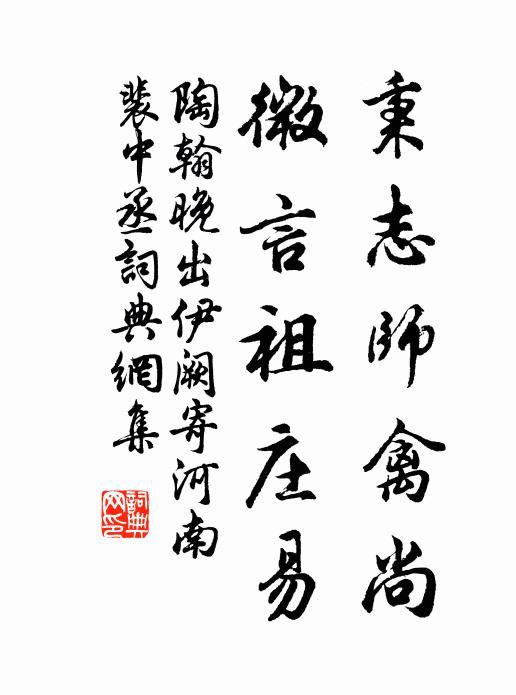 秉志師禽尚
微言祖庄易
陶翰晚出伊阙寄河南
裴中丞詞典網集
詞典网印